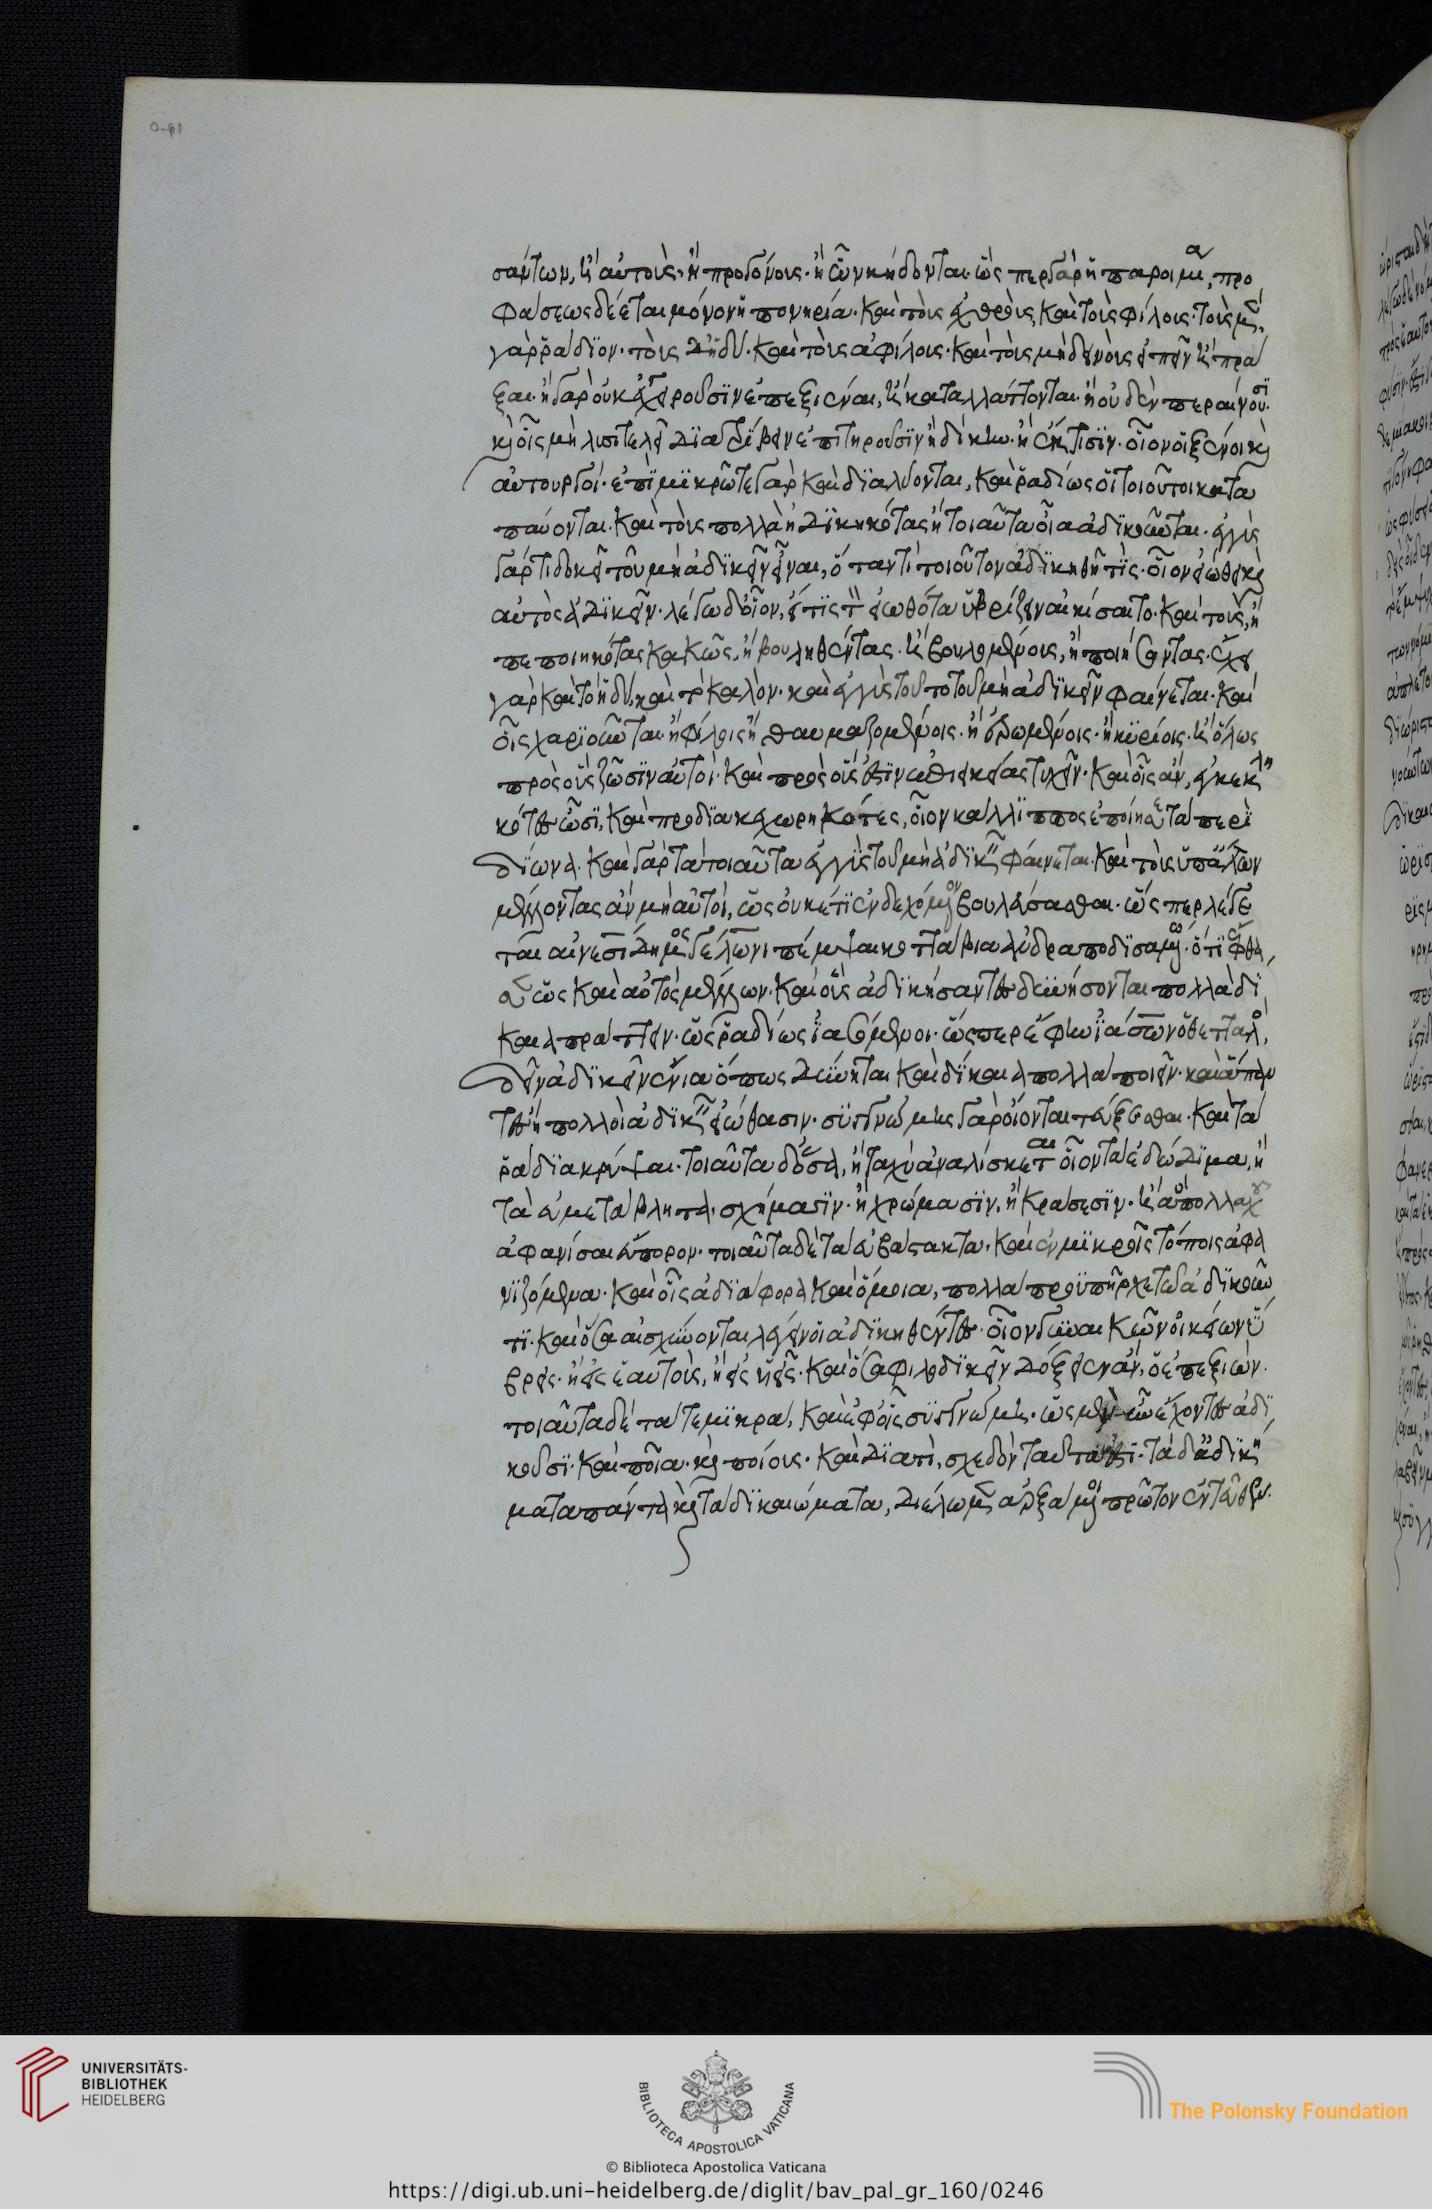 σάντων, ἢ αὐτοὺς· ἢ προγόνους· ἢ ὧν κήδονται· ὥς περ γὰρ ἡ παροιμία, προ
φάσεως δέεται μόνον ἡ πονηρία· καὶ τοὺς ἐχθροὺς, καὶ τοὺς φίλους· τοὺς μὲν
γὰρ ῥάδϊον· τοὺς δ' ἡδύ· καὶ τοὺς ἀφίλους· καὶ τοὺς μὴ δεινοὺς εἰπεῖν ἢ πρᾶ
ξαι· ἢ γὰρ οὐκ ἐγχειροῦσϊν ἐπεξιέναι, ἢ καταλλάττονται· ἢ οὐδὲν περαίνουσϊ·
καὶ οἷς μὴ λυσιτελεῖ δϊατρίβειν ἐπιτηροῦσϊν ἢ δίκην· ἢ ἔκτισϊν· οἷον οἱ ξένοι καὶ
αὐτουργοί· ἐπὶ μϊκρῶ τε γὰρ καὶ δϊαλύονται, καὶ ῥαδίως οἱ τοιοῦτοι κατα
παύονται· καὶ τοὺς πολλὰ ἠδϊκηκότας ἢ τοιαῦτα οἷα ἀδϊκοῦνται· ἐγγὺς
γάρ τι δοκεῖ τοῦ μὴ ἀδϊκεῖν εἶναι, ὅταν τὶ τοιοῦτον ἀδϊκηθῆ τὶς· οἷον εἴωθε καὶ
αὐτὸς ἀδϊκεῖν· λέγω δ' οἷον, εἴ τϊς τὸν εἰωθότα ὑβρίζειν αἰκίσαιτο· καὶ τοὺς, ἢ
πεποιηκότας κακῶς, ἢ βουληθέντας· ἢ βουλομένους, ἢ ποιήσοντας· ἔχει
γὰρ καὶ τὸ ἡδὺ, καὶ τὸ καλὸν· καὶ ἐγγὺς τούτο τοῦ μὴ ἀδϊκεῖν φαίνεται· καὶ
οἷς χαρϊοῦνται· ἢ φίλοις ἢ θαυμαζομένοις· ἢ ἐρωμένοις· ἢ κυρίοις· ἢ ὅλως
πρὸς οὓς ζῶσϊν αὐτοὶ· καὶ πρὸς οὓς ἐστϊν ἐπιεικείας τυχεῖν· καὶ οἷς ἂν, ἐγκεκλη
κότες ὦσϊ, καὶ προδϊακεχωρηκότες, οἷον καλλϊππος ἐποίησε τὰ περὶ
δίωνα· καὶ γὰρ τὰ τοιαῦτα ἐγγὺς τοῦ μὴ ἀδϊκεῖν φαίνεται· καὶ τοὺς ὑπ' ἄλλων
μέλλοντας ἂν μὴ αὐτοὶ, ὡς οὐκέτϊ ἐνδεχόμενον βουλεύσασθαι· ὥς περ λέγε
ται αἰνεσίδημος γέλωνι πέμψαι κοττάβια ἀνδραποδϊσαμένω· ὅτϊ ἔφθα
σεν ὡς καὶ αὐτὸς μέλλων· καὶ οἷς ἀδϊκήσαντες δυνήσονται πολλὰ δί
καια πράττειν· ὡς ῥαδίως ἰασόμενοι· ὥς περ ἔφη ἰάσων ὁ θετταλός,
δεῖν ἀδϊκεῖν ἔνια ὅπως δύνηται καὶ δίκαια πολλὰ ποιεῖν· καὶ ἃ πάν
τες ἢ πολλοὶ ἀδϊκεῖν εἰώθασιν· συγγνώμης γὰρ οἴονται τεύξεσθαι· καὶ τὰ
ῥάδϊα κρύψαι· τοιαῦτα δ' ὅσα, ἢ ταχὺ ἀναλίσκεται οἷον τὰ ἐδώδϊμα, ἢ
τὰ εὐμετάβλητα· σχήμασϊν· ἢ χρώμασϊν, ἢ κράσεσϊν· ἢ ἃ πολλαχοῦ
ἀφανίσαι εὔπορον· τοιαῦτα δὲ τὰ εὐβάστακτα· καὶ ἐν μϊκροῖς τόποις ἀφα
νϊζόμενα· καὶ οἷς ἀδϊάφορα καὶ ὅμοια, πολλὰ προϋπῆρχε τῶ ἀδϊκοῦν
τϊ· καὶ ὅσα αἰσχύνονται λέγειν οἱ ἀδϊκηθέντες· οἷον γυναικῶν οἰκείων ὕ
βρεις· ἢ εἰς ἑαυτοὺς, ἢ εἰς υἱεῖς· καὶ ὅσα φιλοδϊκεῖν δόξειεν ἂν, ὁ ἐπεξιών·
τοιαῦτα δὲ τά τε μϊκρά, καὶ ἐφ' οἷς συγγνώμη· ὡς μὲν οὖν ἔχοντες ἀδϊ
κοῦσϊ· καὶ ποῖα· καὶ ποίους· καὶ δϊατὶ, σχεδὸν ταῦτα ἐστϊ· τὰ δ' ἀδϊκή
ματα πάντα καὶ τὰ δϊκαιώματα, διέλωμεν ἀρξάμενοι πρῶτον ἐντεῦθεν·
UNIVERSITÄTS-
BIBLIOTHEK
HEIDELBERG
BIBLIOTECA APOSTOLICA VATICANA
The Polonsky Foundation
© Biblioteca Apostolica Vaticana
https://digi.ub.uni-heidelberg.de/diglit/bav_pal_gr_160/0246